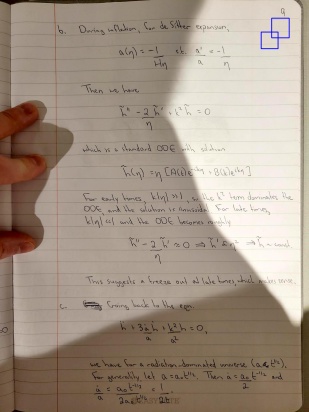 9
b. During inflation, for de Sitter expansion,
a(η) = -1/Hη so a'/a = -1/η
Then we have
h̃'' - 2/η h̃' + k² h̃ = 0
which is a standard ODE with solution
h̃(η) = η [A(k)e^{-ikη} + B(k)e^{ikη}]
For early times, k|η| >> 1, so the k² term dominates the
ODE and the solution is sinusoidal. For late times,
k|η| << 1 and the ODE becomes merely
h̃'' - 2/η h̃' ≈ 0 ⟹ h̃' ∝ η² ⟹ h̃ ≈ const.
This suggests a freeze out at late times, which makes sense.
c. Going back to the eqn
ḧ + 3ȧ/a ḣ + k²/a² h = 0,
we have for a radiation dominated universe (a ∝ t^{1/2}).
For generality let a = a₀t^{1/2}. Then ȧ = a₀t^{-1/2}/2 and
ȧ/a = a₀t^{-1/2}/2a₀t^{1/2} = 1/2t.